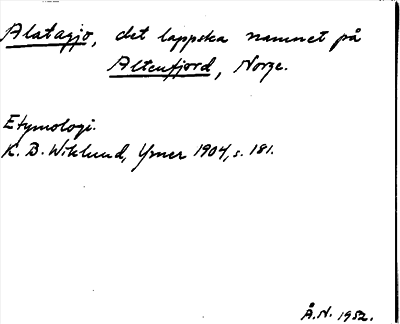 Alatagjo, det lappska namnet på
Altenfjord, Norge.
Etymologi.
K. B. Wiklund, Ymer 1904, s. 181.
Å. N. 1952.